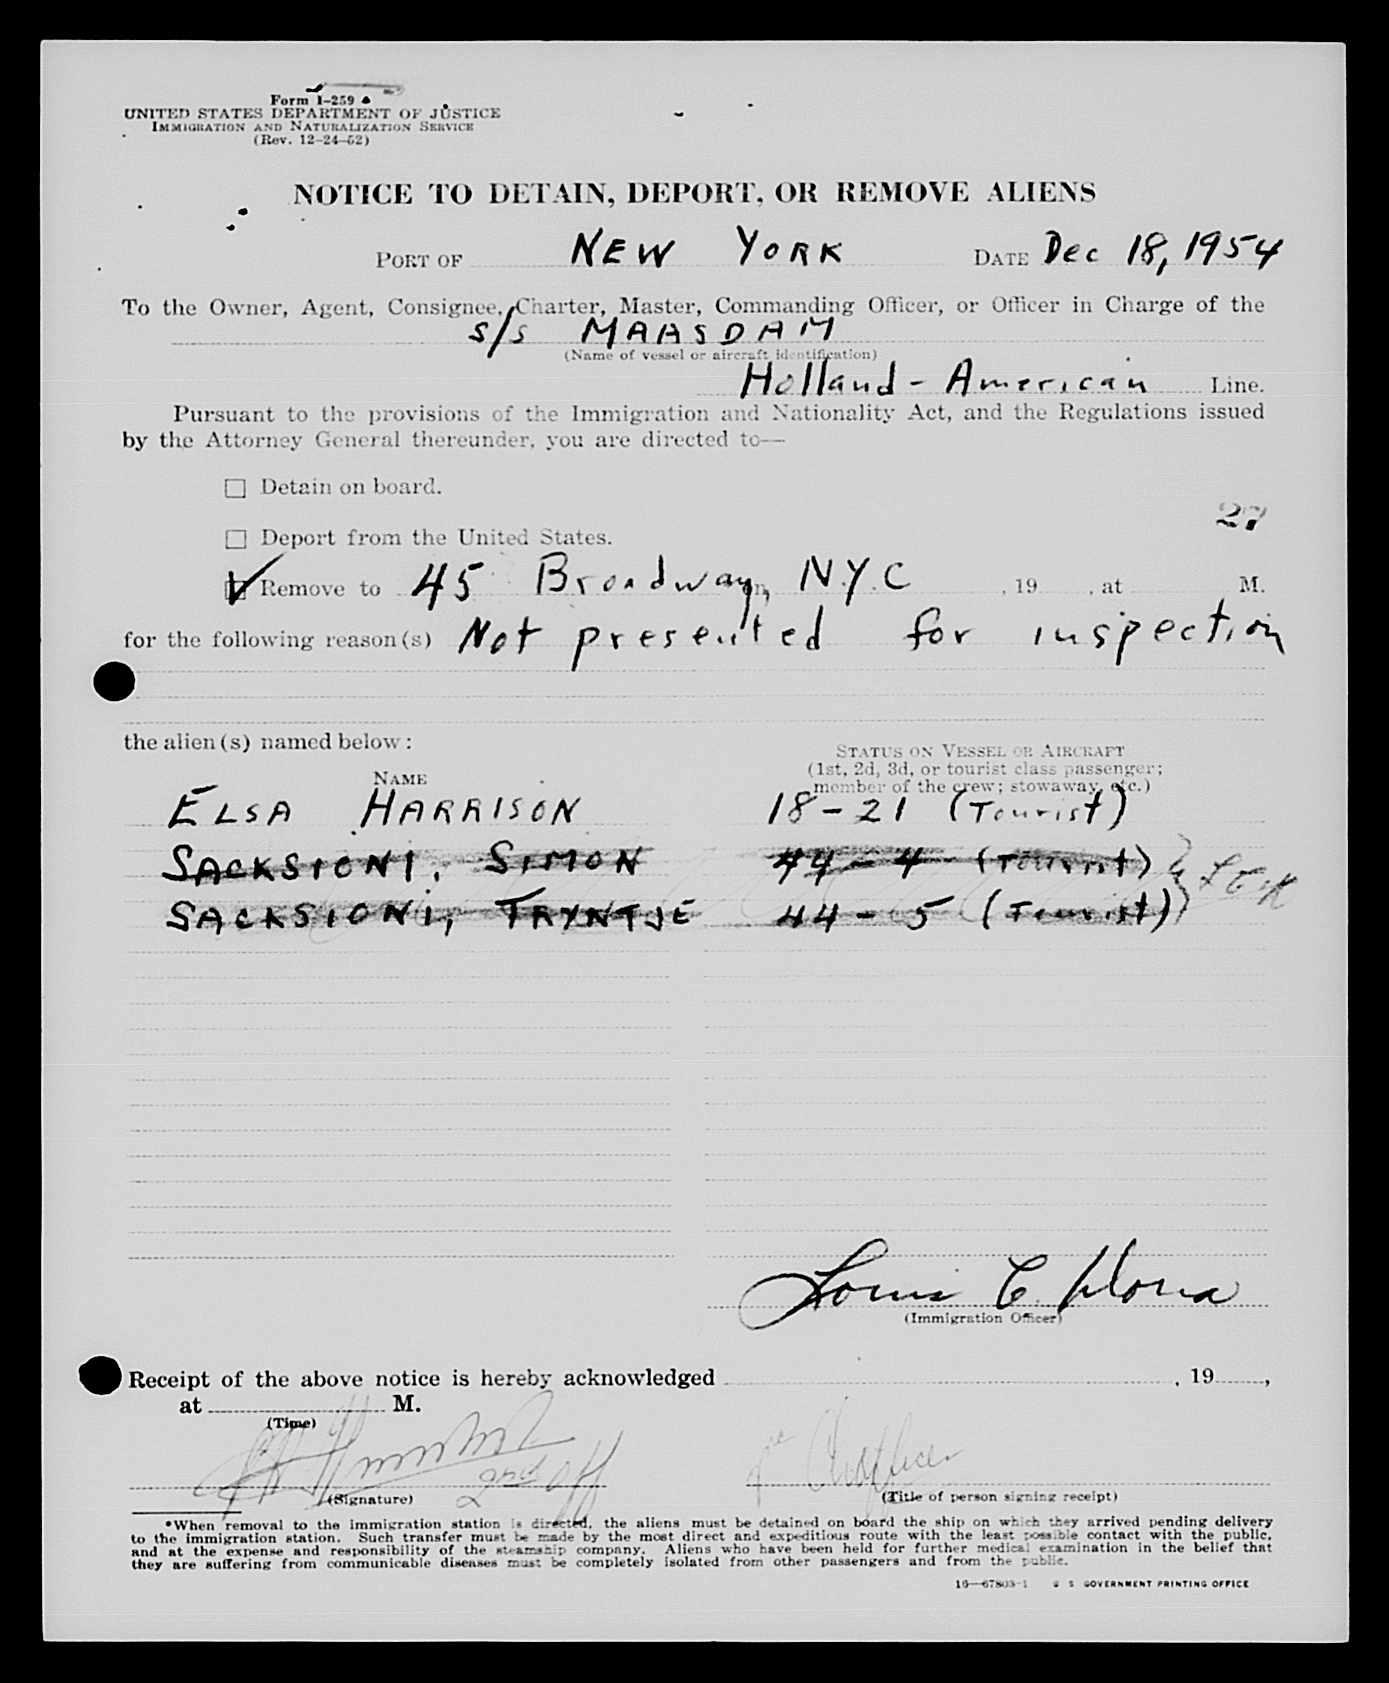 Form I-259
UNITED STATES DEPARTMENT OF JUSTICE
IMMIGRATION AND NATURALIZATION SERVICE
(Rev. 12-24-52)
NOTICE TO DETAIN, DEPORT, OR REMOVE ALIENS
PORT OF NEW YORK DATE Dec 18, 1954
To the Owner, Agent, Consignee, Charter, Master, Commanding Officer, or Officer in Charge of the
S/S MAASDAM
(Name of vessel or aircraft identification)
Holland-American Line.
Pursuant to the provisions of the Immigration and Nationality Act, and the Regulations issued
by the Attorney General thereunder, you are directed to—
Detain on board.
27
Deport from the United States.
Remove to 45 Broadway, N.Y.C , 19 , at M.
for the following reason(s) Not presented for inspection
the alien(s) named below:
STATUS ON VESSEL OR AIRCRAFT
(1st, 2d, 3d, or tourist class passenger;
NAME
member of the crew; stowaway, etc.)
ELSA HARRISON 18-21 (Tourist)
SACKSIONI, SIMON 44-4 (Tourist)
SACKSIONI, TRYNTJE 44-5 (Tourist)
Louis C.
(Immigration Officer)
Receipt of the above notice is hereby acknowledged , 19 ,
at M.
(Time)
(Signature)
(Title of person signing receipt)
*When removal to the immigration station is directed, the aliens must be detained on board the ship on which they arrived pending delivery
to the immigration station. Such transfer must be made by the most direct and expeditious route with the least possible contact with the public,
and at the expense and responsibility of the steamship company. Aliens who have been held for further medical examination in the belief that
they are suffering from communicable diseases must be completely isolated from other passengers and from the public.
16—67803-1 U S GOVERNMENT PRINTING OFFICE